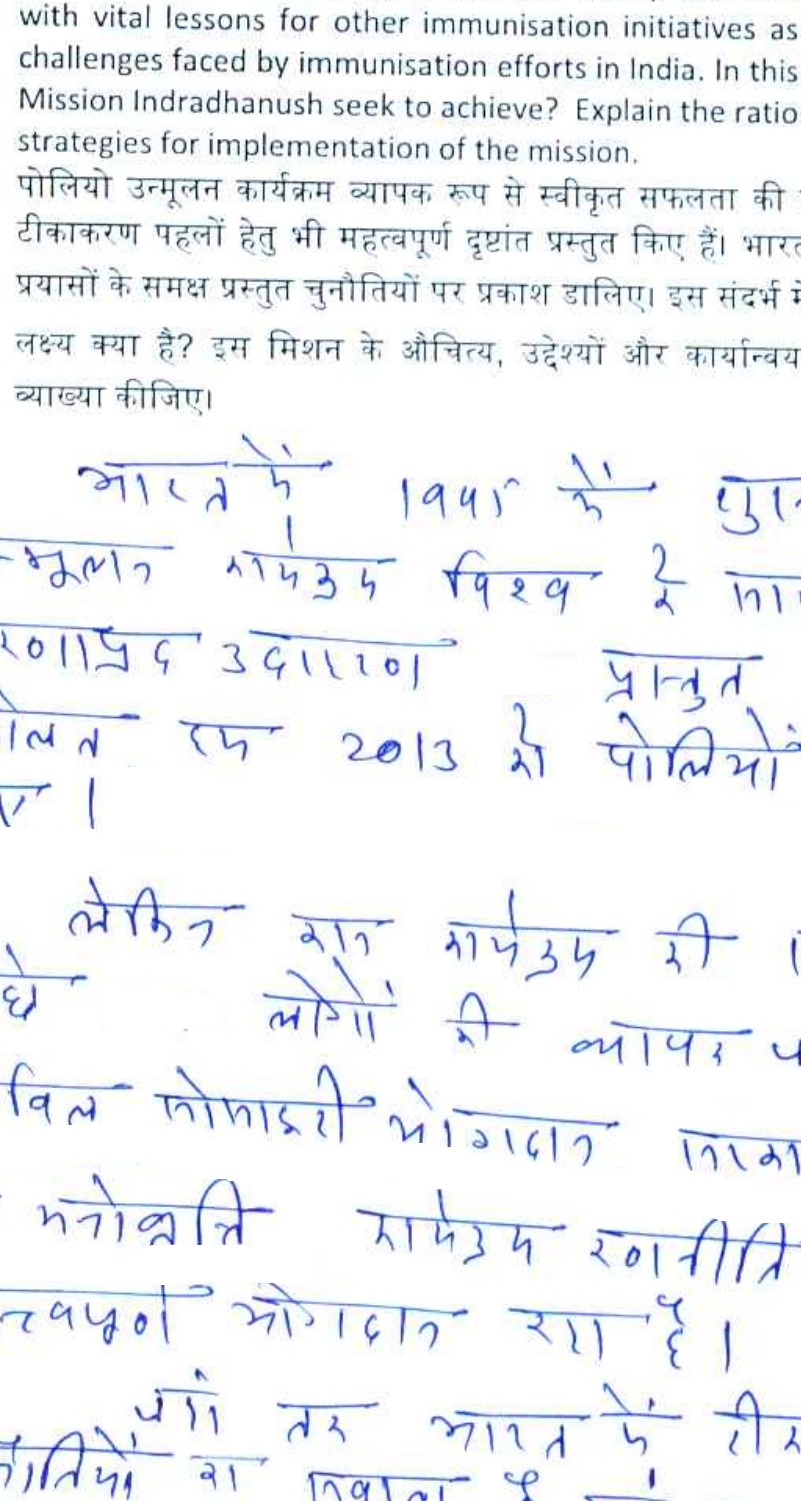 with vital lessons for other immunisation initiatives as
challenges faced by immunisation efforts in India. In this
Mission Indradhanush seek to achieve? Explain the ratio
strategies for implementation of the mission.
पोलियो उन्मूलन कार्यक्रम व्यापक रूप से स्वीकृत सफलता की
टीकाकरण पहलों हेतु भी महत्वपूर्ण दृष्टांत प्रस्तुत किए हैं। भारत
प्रयासों के समक्ष प्रस्तुत चुनौतियों पर प्रकाश डालिए। इस संदर्भ में
लक्ष्य क्या है? इस मिशन के औचित्य, उद्देश्यों और कार्यान्वय
व्याख्या कीजिए।
भारत में 1995 में शुरु
न्मूलन कार्यक्रम विश्व के सा
रणाप्रद उदाहरण प्रस्तुत
2013 को पोलियो
लेकिन इस कार्यक्रम की
लोगों की व्यापक
विल सोसाइटी योगदान
मनोवृत्ति कार्यक्रम रणनीति
त्वपूर्ण योगदान रहा है।
जहां तक भारत में टीक
नौतियों का सवाल है